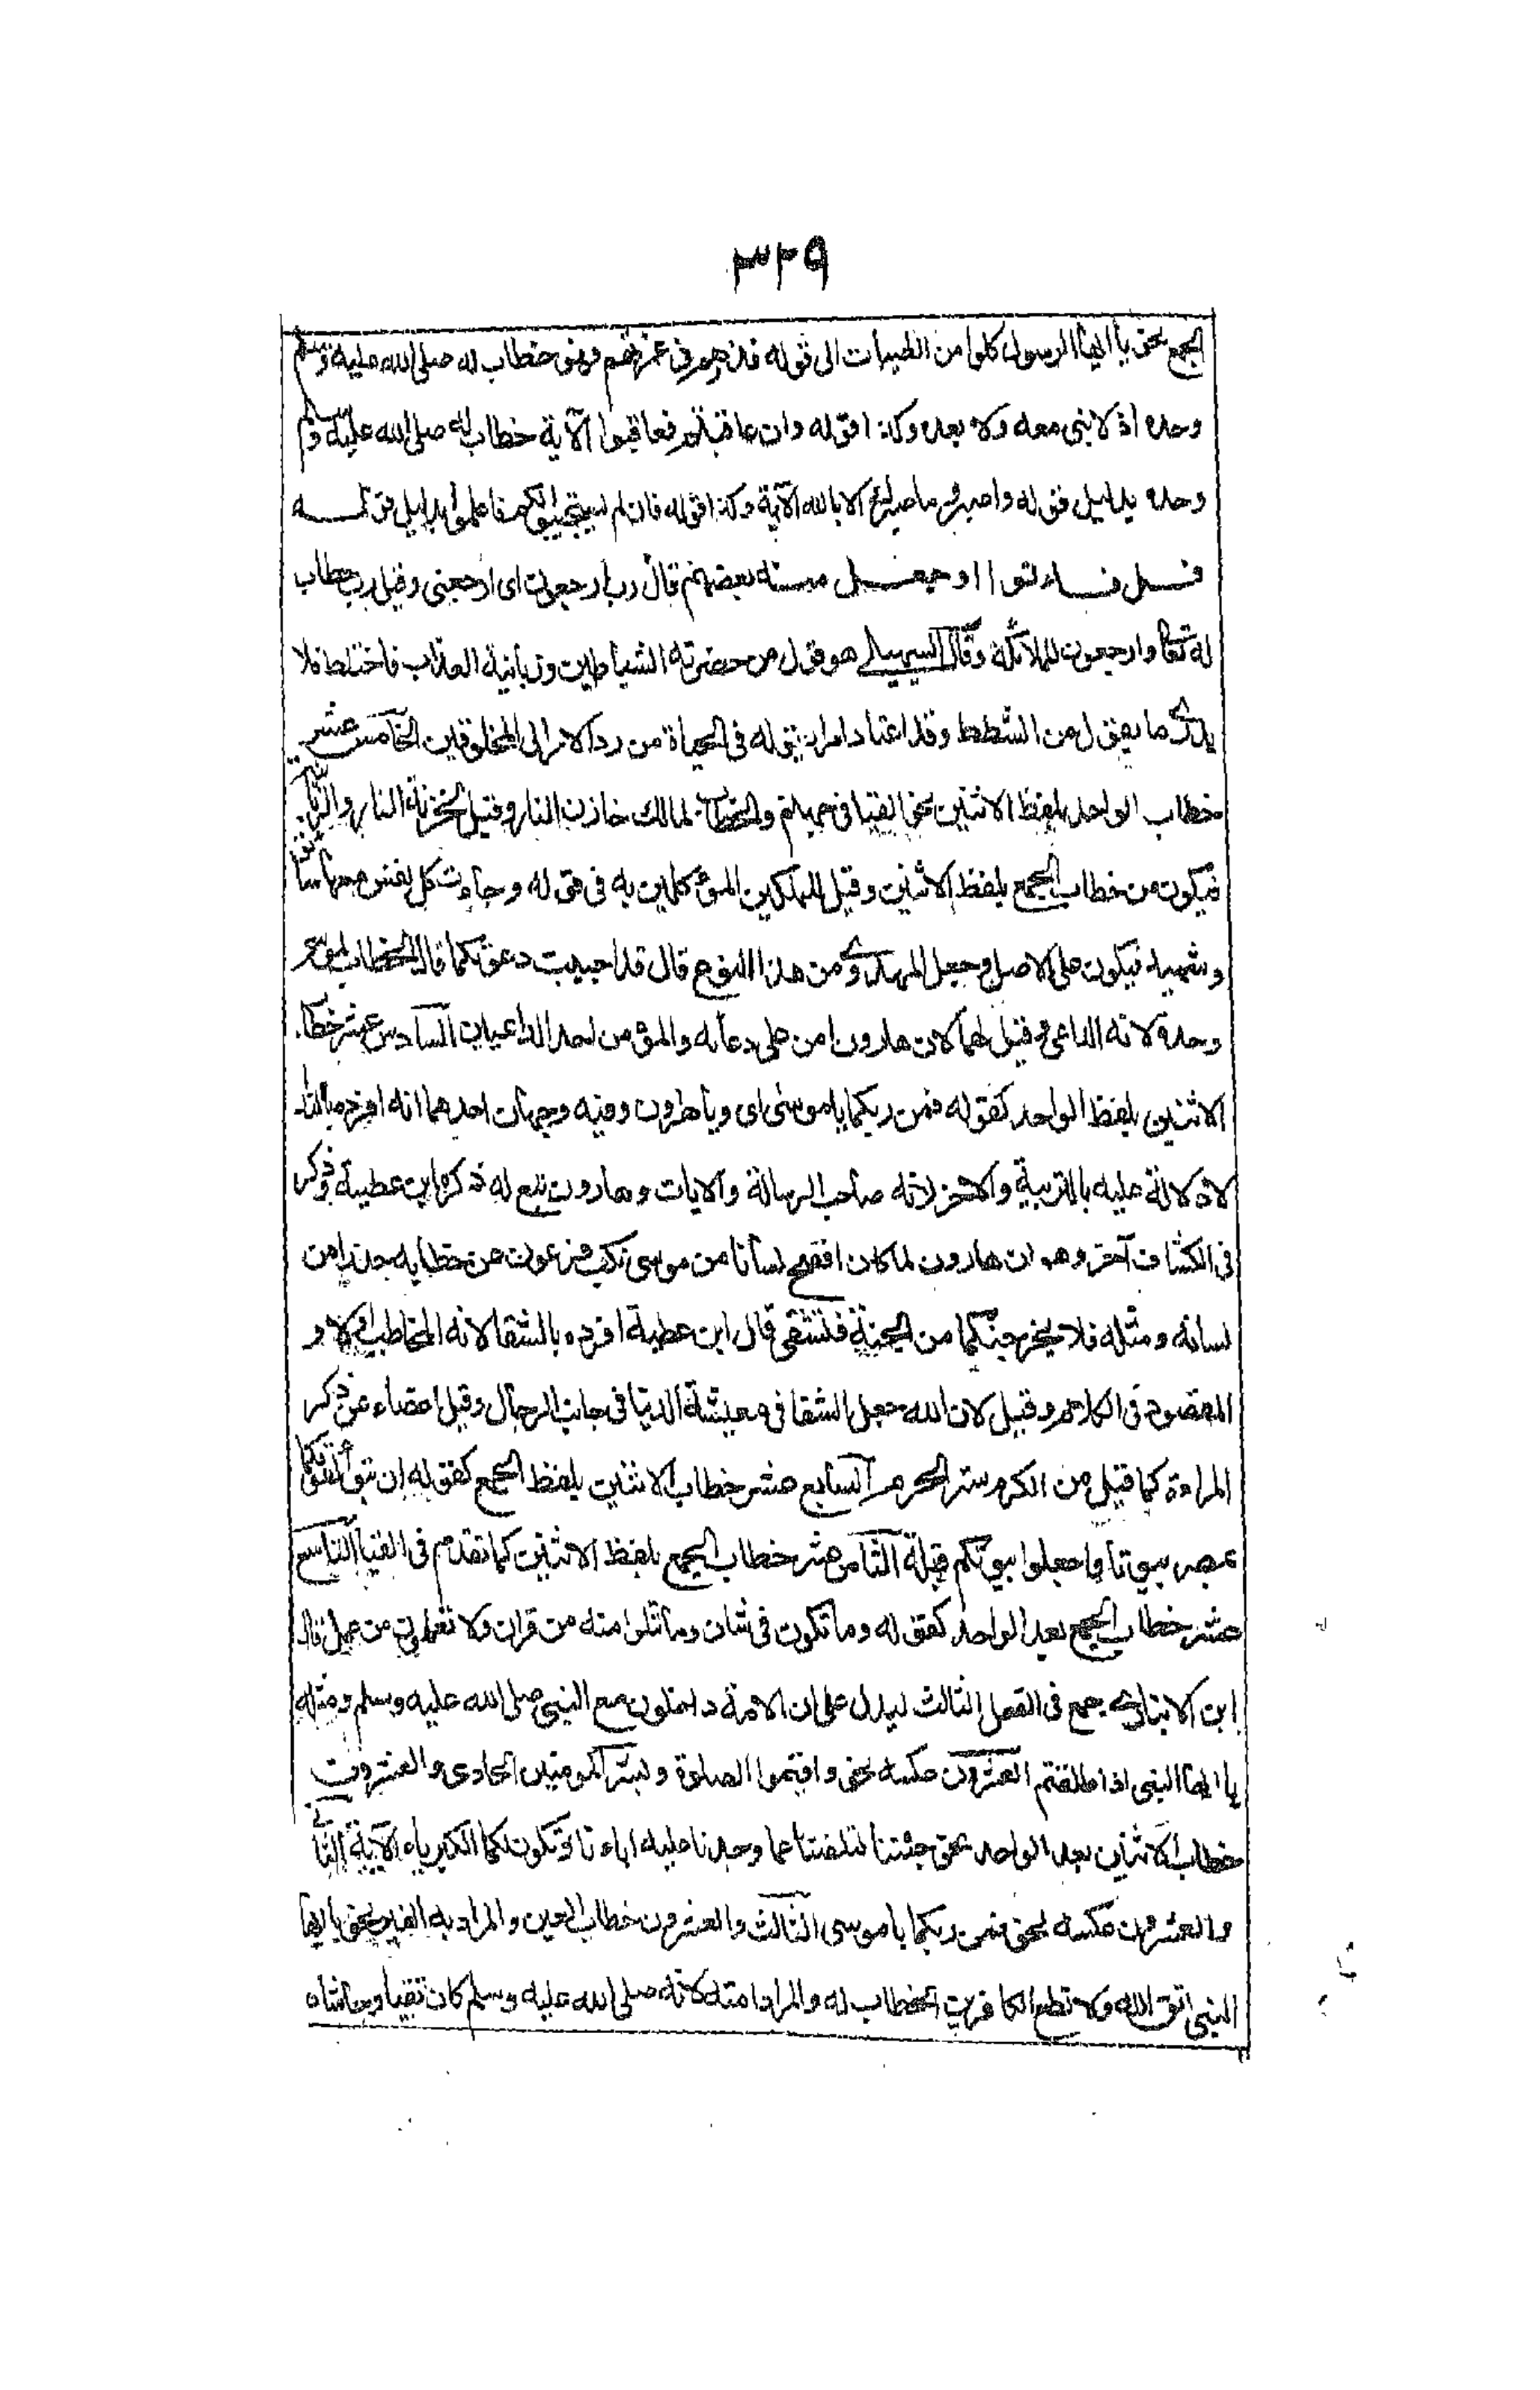 ٣٢٩
الجمع نحو يا ايها الرسول كلوا من الطيبات الى قوله فذرهم فى غمرتهم فهو خطاب له صلى الله عليه وسلم
وحده اذ لا نبى معه ولا بعده وكذا قوله وان عاقبتم فعاقبوا الآية خطاب له صلى الله عليه وسلم
وحده بدليل قوله واصبر وما صبرك الا بالله الآية وكذا قوله فان لم يستجيبوا لكم فاعلموا بدليل قوله
قل فاتوا وجعل منه بعضهم قال رب ارجعون اى ارجعنى وقيل رب خطاب
له تعا وارجعون للملائكة وقال السهيلى هو قول من حضرته الشياطين وزبانية العذاب فاختلط فلا
يدرى ما يقول من الشطط وقد اعتاد امرا يقوله فى الحياة من رد الامر الى المخلوقين الخامس عشر
خطاب الواحد بلفظ الاثنين نحو القيا فى جهنم والخطاب لمالك خازن النار وقيل لخزنة النار والزبانية
فيكون من خطاب الجمع بلفظ الاثنين وقيل للملكين الموكلين به فى قوله وجاءت كل نفس معها سائق
وشهيد فيكون على الاصل وجعل المهدوى من هذا النوع قال قد اجيبت دعوتكما قال الخطاب لموسى
وحده لانه الداعى وقيل لهما لان هارون امن على دعائه والمؤمن احد الداعيين السادس عشر خطاب
الاثنين بلفظ الواحد كقوله فمن ربكما يا موسى اى ويا هارون وفيه وجهان احدهما انه افرده بالنداء
لادلاله عليه بالتربية والآخر لانه صاحب الرسالة والآيات وهارون تبع له ذكره ابن عطية وذكر
فى الكشاف آخر وهو ان هارون لما كان افصح لسانا من موسى نكب فرعون عن خطابه حذرا من
لسانه ومثله فلا يخرجنكما من الجنة فتشقى قال ابن عطية افرده بالشقا لانه المخاطب اولا و
المقصود فى الكلام وقيل لان الله جعل الشقا فى معيشة الدنيا فى جانب الرجال وقيل اغضاء عن ذكر
المراءة كما قيل من الكرم ستر الحرم السابع عشر خطاب الاثنين بلفظ الجمع كقوله ان تبوأ لقومكما
بمصر بيوتا واجعلوا بيوتكم قبلة الثامن عشر خطاب الجمع بلفظ الاثنين كما تقدم فى القيا التاسع
عشر خطاب الجمع بعد الواحد كقوله وما تكون فى شان وما تتلوا منه من قران ولا تعملون من عمل قال
ابن الانبارى جمع فى الفعل الثالث ليدل على ان الامة داخلون مع النبى صلى الله عليه وسلم ومثله
يا ايها النبى اذا طلقتم العشرون عكسه نحو واقيموا الصلوة وبشر المومنين الحادى والعشرون
خطاب الاثنين بعد الواحد نحو جئتنا لتلفتنا عما وجدنا عليه اباءنا وتكون لكما الكبرياء الآية الثانى
والعشرون عكسه نحو فمن ربكما يا موسى الثالث والعشرون خطاب العين والمراد به الغير نحو يا ايها
النبى اتق الله ولا تطع الكافرين الخطاب له والمراد امته لانه صلى الله عليه وسلم كان تقيا وحاشاه